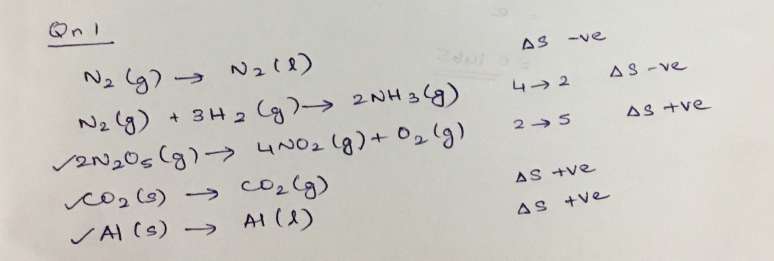 Qn 1
N₂ (g) → N₂ (l) ΔS -ve
N₂ (g) + 3H₂ (g) → 2NH₃ (g) 4→2 ΔS -ve
✓2N₂O₅ (g) → 4NO₂ (g) + O₂ (g) 2→5 ΔS +ve
✓CO₂ (s) → CO₂ (g) ΔS +ve
✓Al (s) → Al (l) ΔS +ve